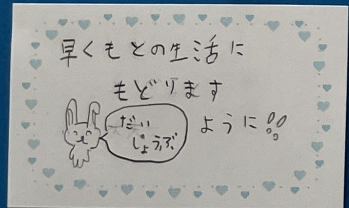 早くもとの生活に
もどります
ように!!
だい
じょうぶ